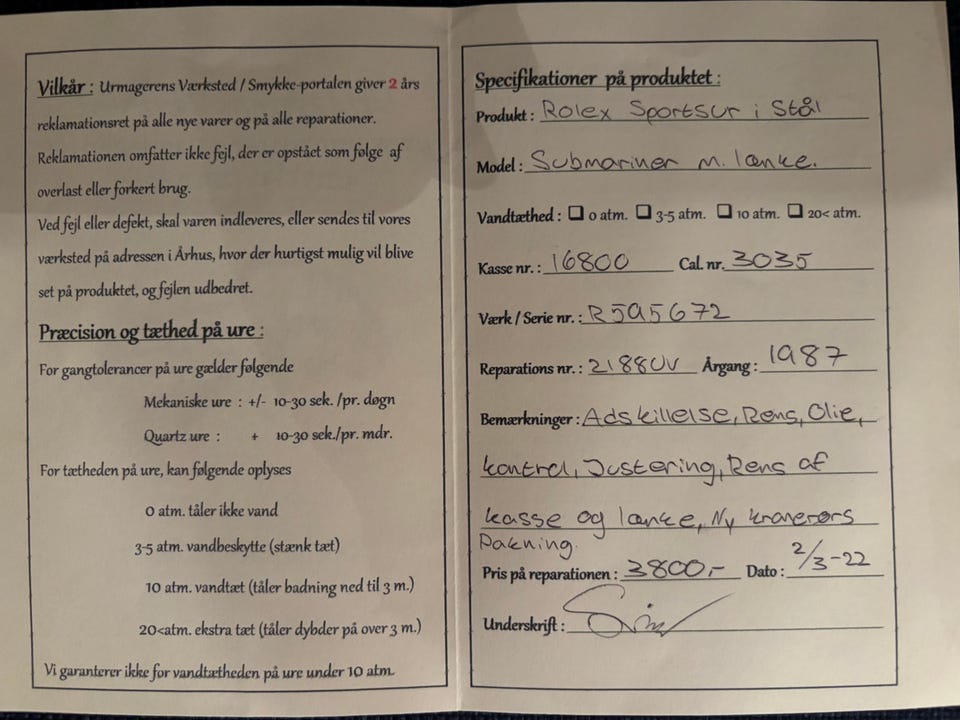 Vilkår : Urmagerens Værksted / Smykke-portalen giver 2 års
reklamationsret på alle nye varer og på alle reparationer.
Reklamationen omfatter ikke fejl, der er opstået som følge af
overlast eller forkert brug.
Ved fejl eller defekt, skal varen indleveres, eller sendes til vores
værksted på adressen i Århus, hvor der hurtigst mulig vil blive
set på produktet, og fejlen udbedret.
Præcision og tæthed på ure :
For gangtolerancer på ure gælder følgende
Mekaniske ure : +/- 10-30 sek. /pr. døgn
Quartz ure : + 10-30 sek./pr. mdr.
For tætheden på ure, kan følgende oplyses
0 atm. tåler ikke vand
3-5 atm. vandbeskytte (stænk tæt)
10 atm. vandtæt (tåler badning ned til 3 m.)
20<atm. ekstra tæt (tåler dybder på over 3 m.)
Vi garanterer ikke for vandtætheden på ure under 10 atm.
Specifikationer på produktet :
Produkt : Rolex Sportsur i Stål
Model : Submariner m. lænke.
Vandtæthed : ❑ 0 atm. ❑ 3-5 atm. ❑ 10 atm. ❑ 20< atm.
Kasse nr. : 16800 Cal. nr. 3035
Værk / Serie nr. : R595672
Reparations nr. : 21880V Årgang : 1987
Bemærkninger : Adskillelse, Rens, Olie,
kontrol, Justering, Rens af
kasse og lænke, Ny kronerørs
Pakning.
Pris på reparationen : 3800,- Dato : 2/3-22
Underskrift :